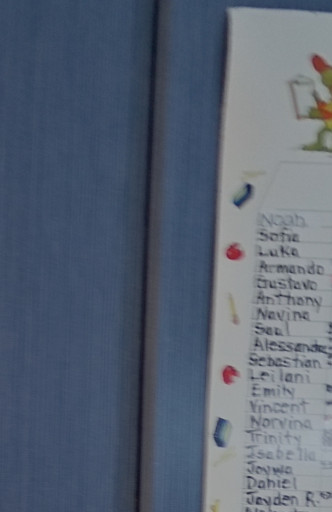 Noah
Sofia
Luka
Armando
Gustavo
Anthony
Navina
Saul
Alessandra
Sebastian
Leilani
Emily
Vincent
Norvina
Trinity
Isabella
Daniel
Jayden R.